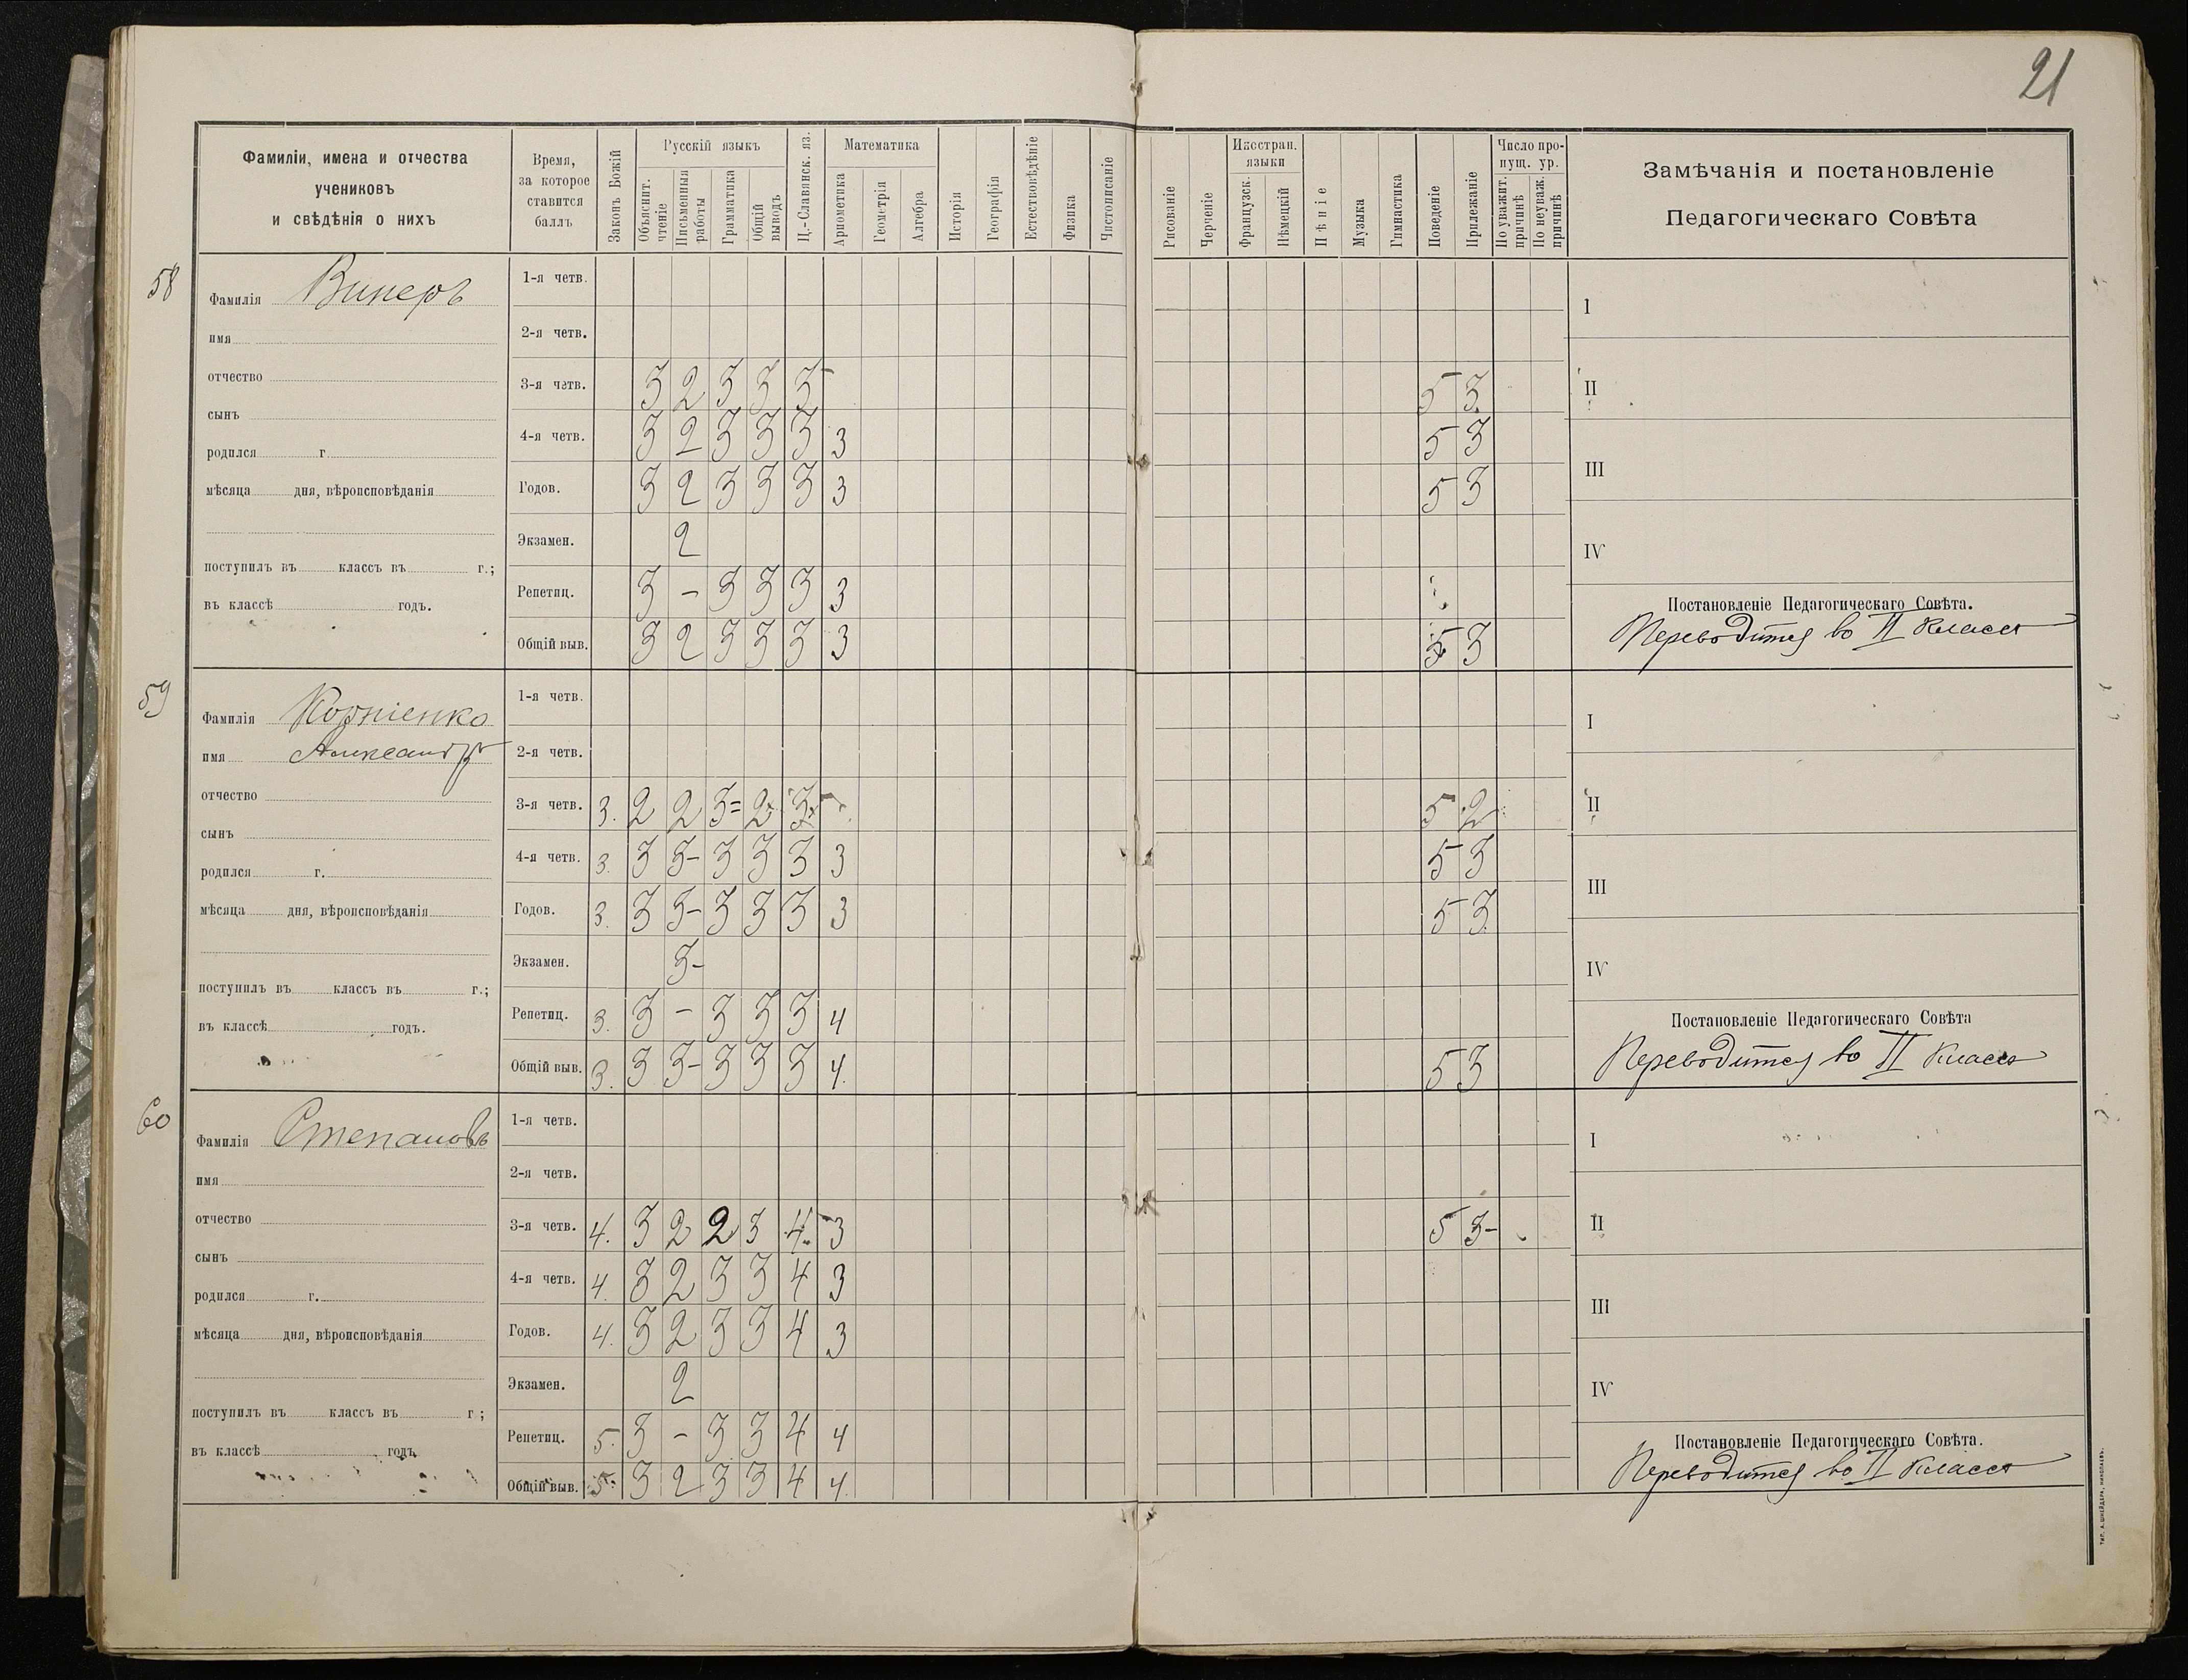 21
Фамиліи, имена и отчества
учениковъ
и свѣдѣнія о нихъ
Время,
за которое
ставится
баллъ
Законъ Божій
Русскій языкъ
Объяснит. чтеніе
Письменныя работы
Грамматика
Общій выводъ
Ц.-Славянск. яз.
Математика
Ариѳметика
Геометрія
Алгебра
Исторія
Географія
Естествовѣдѣніе
Физика
Чистописаніе
Рисованіе
Черченіе
Иностран. языки
Французск.
Нѣмецкій
Пѣніе
Музыка
Гимнастика
Поведеніе
Прилежаніе
Число пропущ. ур.
По уважит. причинѣ
По неуваж. причинѣ
Замѣчанія и постановленіе
Педагогическаго Совѣта
58
Фамилія Винеръ
имя
отчество
сынъ
родился г
мѣсяца дня, вѣроисповѣданія
поступилъ въ классъ въ г.;
въ классѣ годъ.
1-я четв.
2-я четв.
3-я четв. 3 2 3 3 3 5 3
4-я четв. 3 2 3 3 3 3 5 3
Годов. 3 2 3 3 3 3 5 3
Экзамен. 2
Репетиц. 3 - 3 3 3 3
Общій выв. 3 2 3 3 3 3 5 3
I
II
III
IV
Постановленіе Педагогическаго Совѣта.
Переводится во II классъ
59
Фамилія Корніенко
имя Александръ
отчество
сынъ
родился г.
мѣсяца дня, вѣроисповѣданія
поступилъ въ классъ въ г.;
въ классѣ годъ.
1-я четв.
2-я четв.
3-я четв. 3. 2 2 3= 2 3 5 2
4-я четв. 3. 3 3- 3 3 3 3 5 3
Годов. 3. 3 3- 3 3 3 3 5 3
Экзамен. 3-
Репетиц. 3. 3 - 3 3 3 4
Общій выв. 3. 3 3- 3 3 3 4. 5 3
I
II
III
IV
Постановленіе Педагогическаго Совѣта
Переводится во II классъ
60
Фамилія Степановъ
имя
отчество
сынъ
родился г.
мѣсяца дня, вѣроисповѣданія
поступилъ въ классъ въ г;
въ классѣ годъ
1-я четв.
2-я четв.
3-я четв. 4. 3 2 2 3 4. 3 5 3-
4-я четв. 4. 3 2 3 3 4 3
Годов. 4. 3 2 3 3 4 3
Экзамен. 2
Репетиц. 5. 3 - 3 3 4 4
Общій выв. 5. 3 2 3 3 4 4.
I
II
III
IV
Постановленіе Педагогическаго Совѣта.
Переводится во II классъ
ТИП. А. ШНЕЙДЕРА, НИКОЛАЕВЪ.